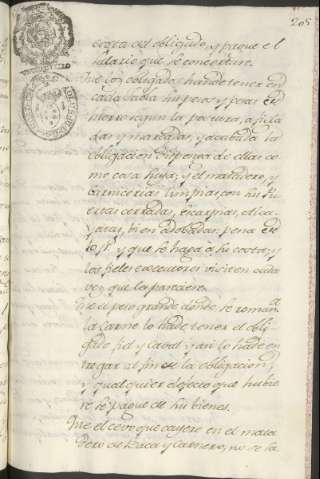 205
cerca del obligado, y pague el
salario que se concertare.
Que los obligados han de tener en
cada tabla sus pesos y pesas
segun la postura, afila
das y marcadas, y acabada la
obligacion disponga de ellas co
mo cosa suya; y el matadero, y
carnicerias limpias, con sus pu
ertas cerradas, escarpias,
bien adobadas, pena
y que se haga a su costa, y
los fieles executores visiten cada
vez que les pareciere.
Que el peso grande donde se roman
a
la carne lo ha de tener el obli
gado fiel y cabal, y asi lo ha de en
tregar al fin de la obligacion,
y qualquier defecto que hubie
re se pague de sus bienes.
Que el cevo que cayere en el mata
dero de Baca y Carnero, no se la